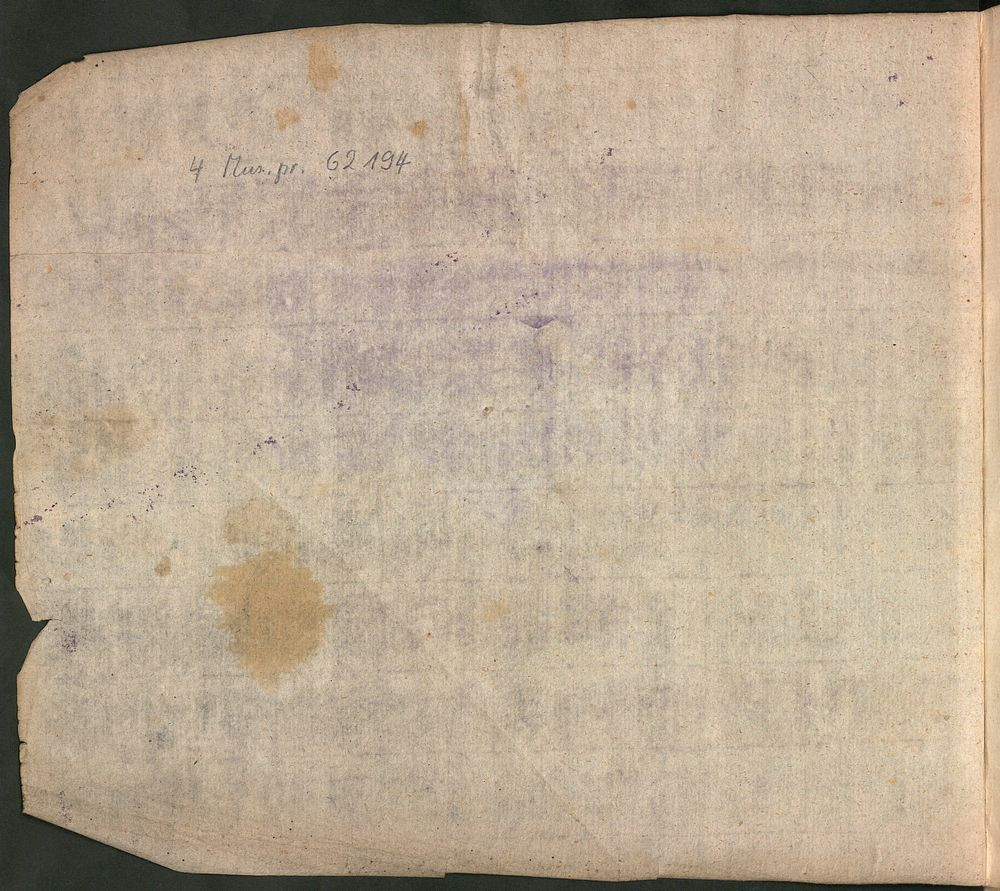 4 Mus. pr. 62 194